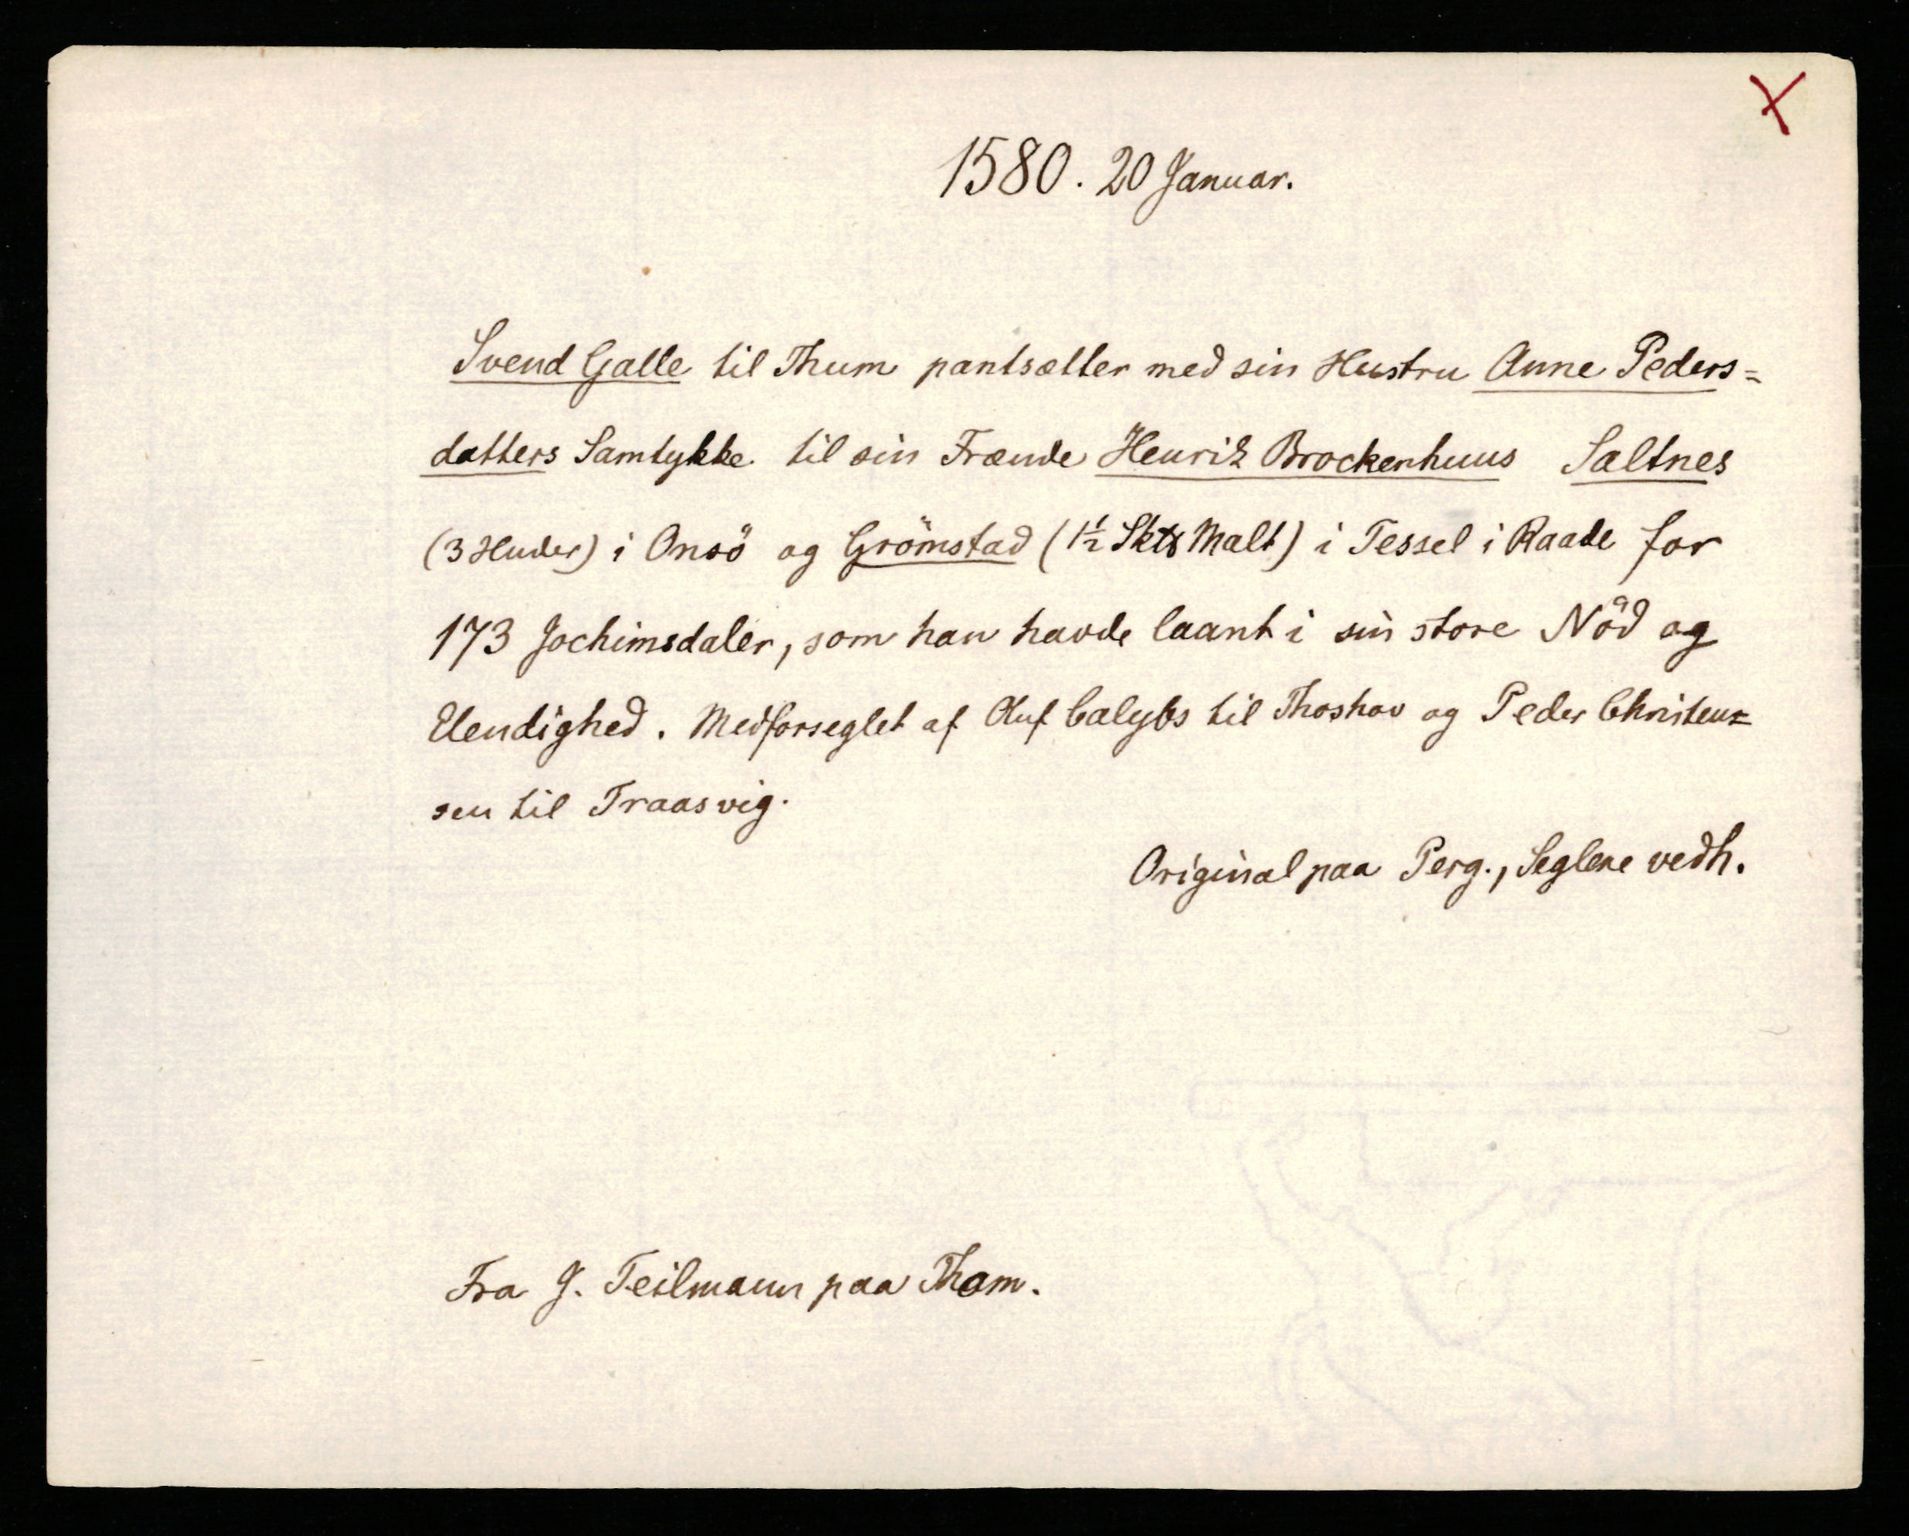 1580. 20 Januar.
Svend Galle til Thum pantsætter med sin Hustru Anne Peders=
datters Samtykke til sin Frænde Henrik Brockenhuus Saltnes
(3 Huder) i Onsö og Grömstad (1½ Skts Malt) i Tessel i Raade for
173 Jochimsdaler, som han havde laant i sin store Nöd og
Elendighed. Medforseglet af Oluf Calybs til Thoshov og Peder Christen=
sen til Traasvig.
Original paa Perg., Seglene vedh.
Fra J. Teilmann paa Thom.